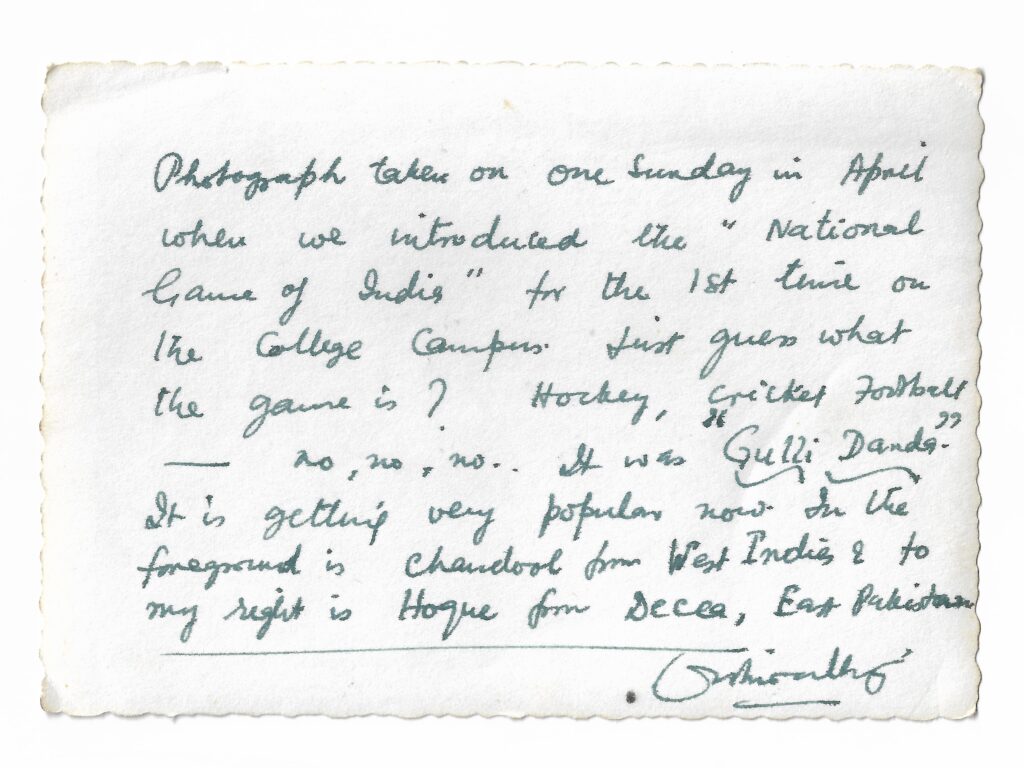 Photograph taken on one Sunday in April
when we introduced the "National
Game of India" for the 1st time on
the College Campus. Just guess what
the game is? Hockey, Cricket Football
— no, no, no.. It was "Gulli Danda."
It is getting very popular now. In the
foreground is Chandool from West Indies & to
my right is Hoque from Decca, East Pakistan